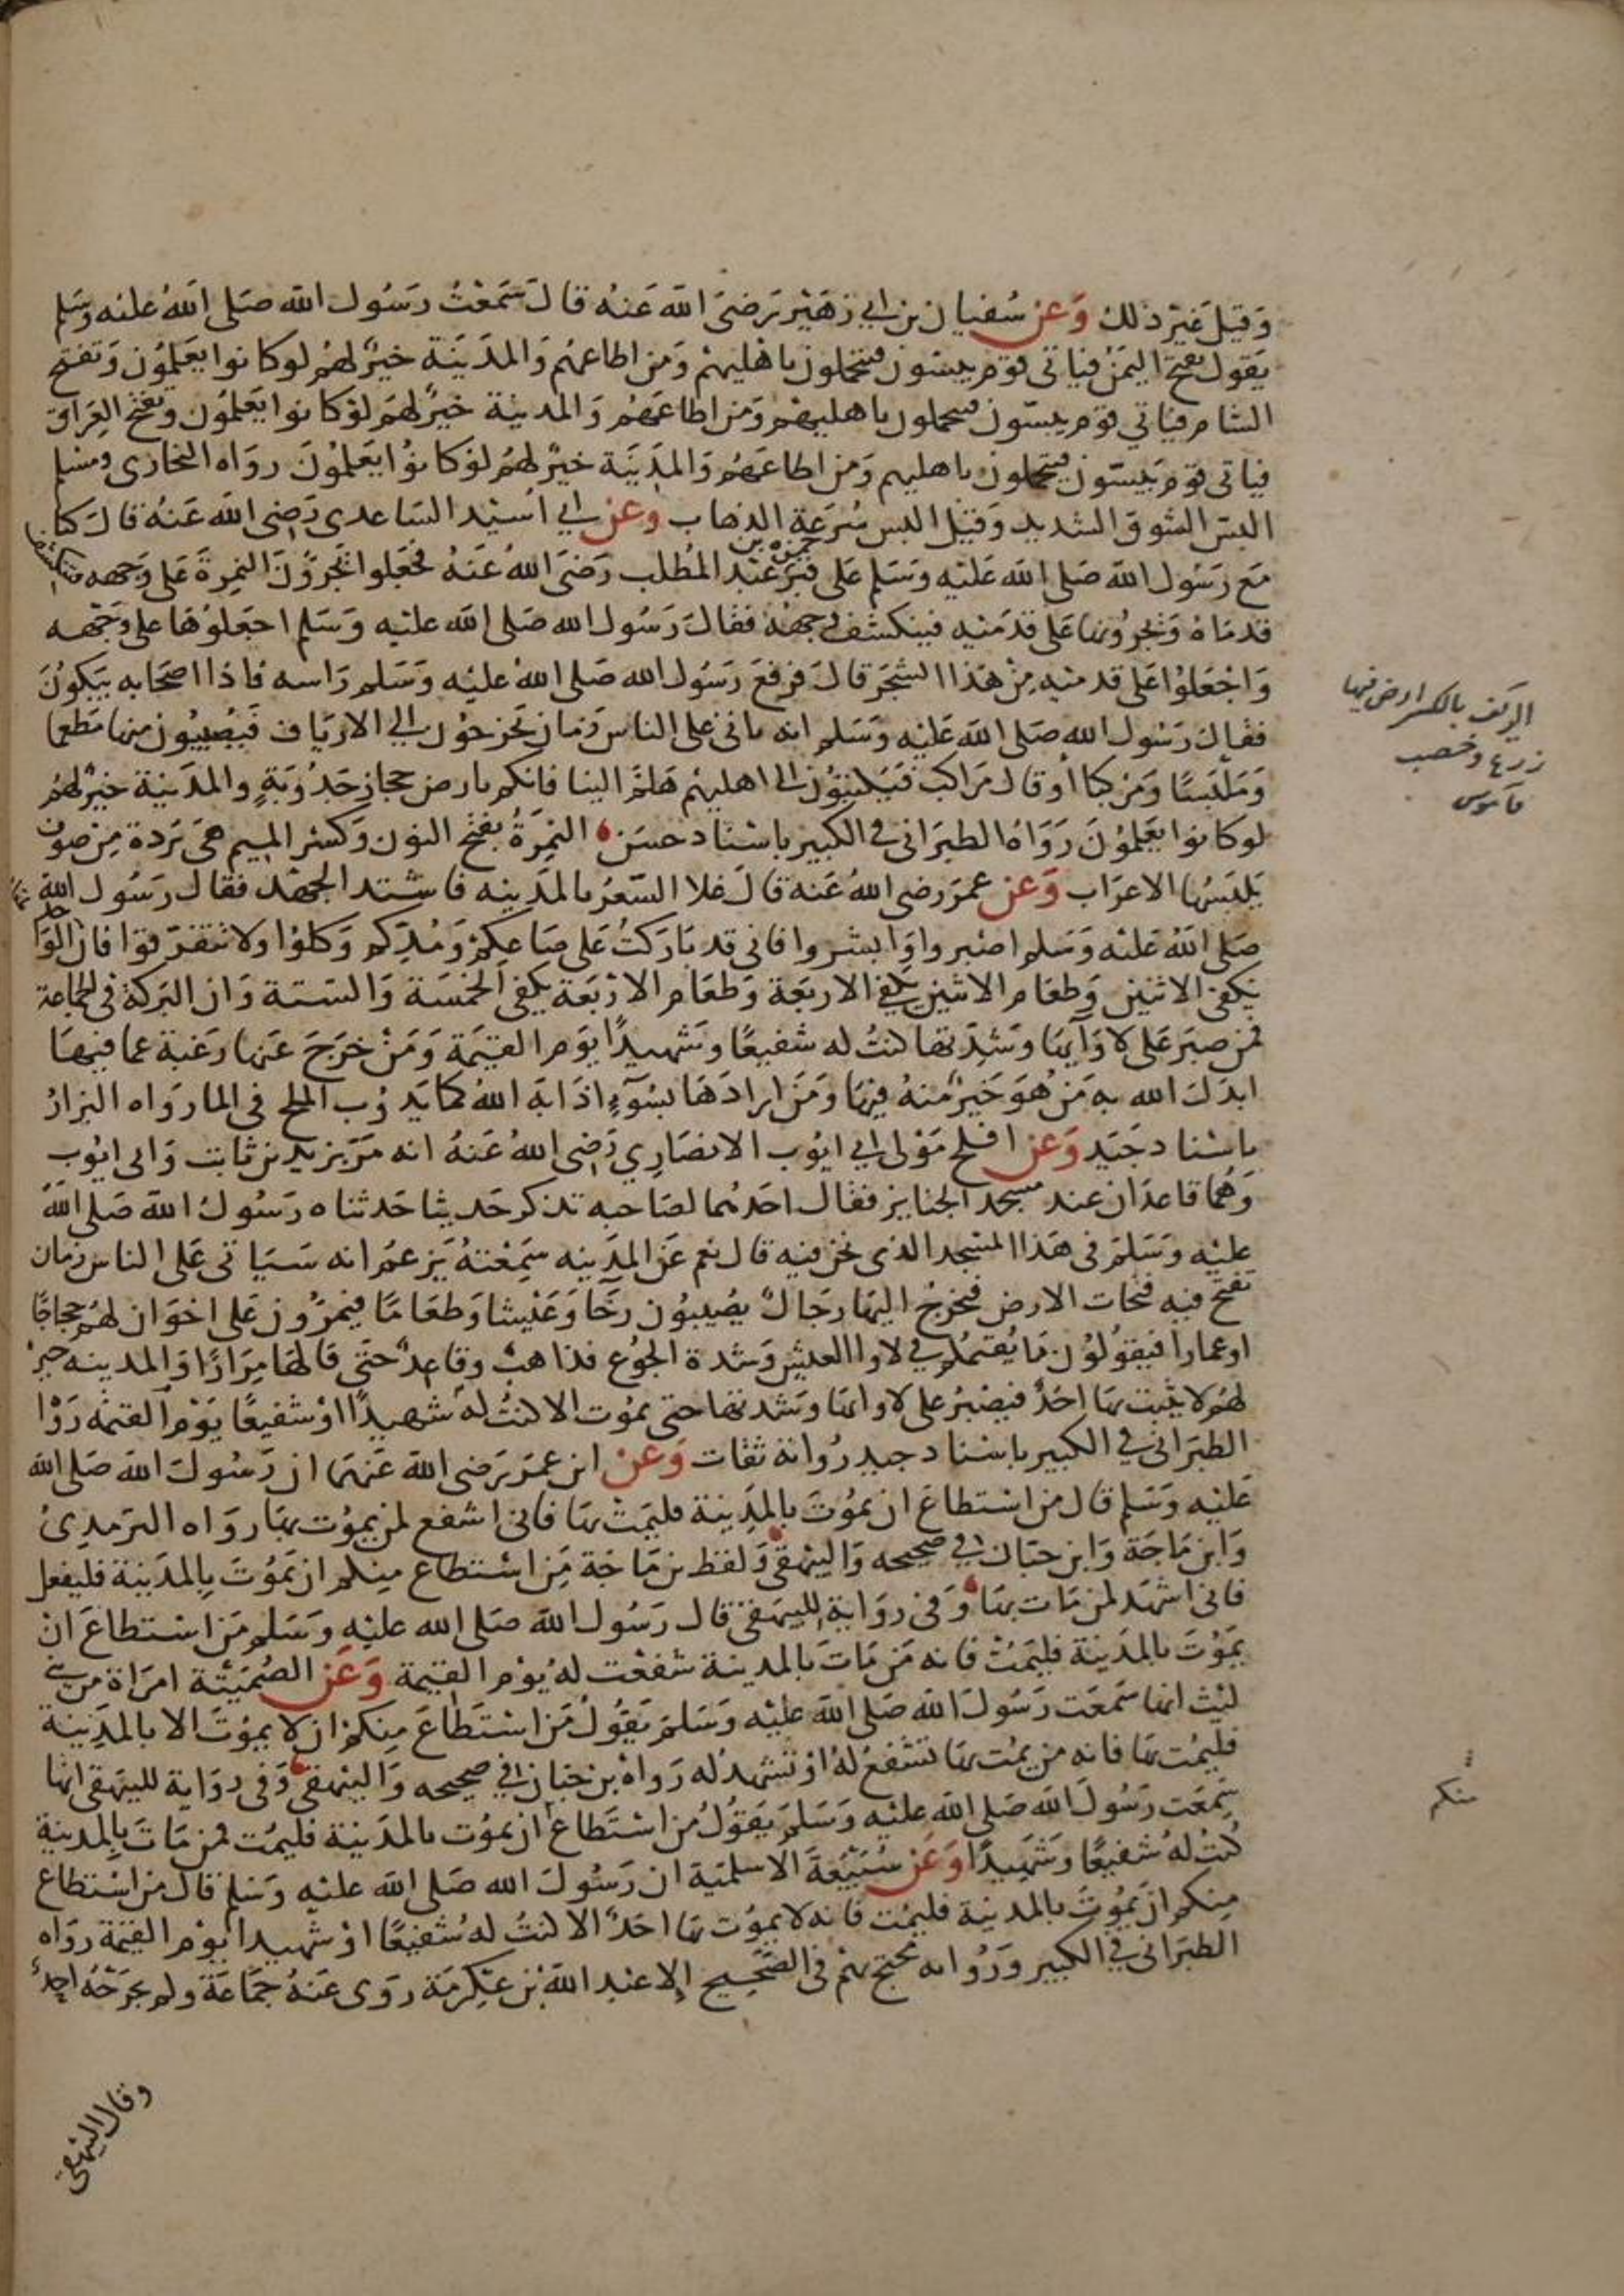 وَقيْلَ غيْر ذلك وَعن سُفيان بن ابي زهَيْر رَضيَ الله عَنه قالَ سَمَعْتُ رسَوُل الله صَلى اللهُ عليْه وسَلم
يَقول تفتح اليمَنُ فياتي قوم يبسّون فيتحملون باهليهمْ وَمن اطاعهُم وَالمدَيَنة خيرٌ لهُمْ لو كانوا يعَلموُن وَتفتح
الشام فياتي قوم يبسّون فيتحملون باهليهم وَمن اطاعَهُم وَالمدينة خيرٌ لهَم لوْ كانوا يعَلموُن وتفتح العِراق
فياتي قوم يَبسّون فيتحملون باهليهم وَمن اطاعَهُم وَالمدَينَة خيرٌ لهُم لوْ كانوُا يَعَلموُنَ روَاه البخاري ومسْلم
البسّ السّوق الشديد وَقيْل البس سُرعَة الذهاب وعَن ابي اسُيْد السّاعدي رَضي الله عَنهُ قالَ كنا
مَع رسَوُل الله صَلى الله عَليْه وَسَلم عَلى قبْر حمزة بن عَبْد المُطلب رَضيَ اللهُ عَنهُ فجَعَلوا يَجروُّنَ النمِرةَ عَلى وَجهه فتنكشف
قدمَاهُ وَيجروُنها عَلى قدمَيْه فينكشف وجههُ فقالَ رَسُول الله صَلى الله عليْه وَسَلم اجعَلوُهَا على وَجْهه
وَاجْعَلوُا عَلى قدميْه مِنْ هَذا الشجَر قالَ فرفعَ رَسُول الله صَلى اللهُ عليْه وَسَلم رَاسه فاذا اصحَابه يَبكوُنَ
فقال رَسُول الله صَلى الله عَليْه وَسَلم انه ياتي على الناس زمَان يَخرُجوُن الي الاريَاف فيَصُيبُون منها مَطعما
وَمَلبَسًا وَمَركبًا أو قال مَراكب فيَكتبُون الى اهليهْم هَلمَّ الينا فانكم بارض حجازٍ جَدُوبَةٍ والمدَينة خيرْ لهُمْ
لو كانوا يعَلموُنَ رَوَاهُ الطبَراني في الكبير باسْناد حسَن النمِرَةُ بفتح النون وَكسْر الميم هيَ بَردة مِن صوف
يَلبَسُها الاعرَاب وَعن عمرَ رضي اللهُ عَنه قالَ غلا السّعرُ بالمَدينه فاشْتد الجهْد فقال رَسُول الله
صَلى الله عَليْه وَسَلم اصْبروا وَابشروا فاني قد بَاركتُ عَلى صاعكمْ وَمُدّكم وَكلوُا ولا تتفرّقوا فان طعام الوَاحد
يَكفي الاثنين وَطعَام الاثنين يكفي الاربَعة وَطعَام الارْبعَة يكفي الخمْسَة وَالستة وَان البَركة في الجماعة
فمن صبَر عَلى لاوَآيهَا وَشِدَّتها كنتُ له شفيعًا وَشهيدًا يوَم القيَمة وَمَنْ خرَجَ عَنها رَغبة عما فيهَا
ابدَلَ الله به مَن هُوَ خيْر منهُ فيها وَمَن ارادَهَا بسُوَءٍ اذَابَه اللهُ كما يَذوُب الملح في الما روَاه البزارُ
باسْناد جَيّد وَعن افلح مَوْلى ابي ايوُب الانصَارِي رَضي اللهُ عَنهُ انه مَرّ بزيد بن ثابت وَابي ايوُب
وَهمُا قاعدَان عند مسجد الجنايز فقال احَدهُما لصَاحبه تذكر حَديثا حَدثناه رَسُولُ الله صَلى الله
عليْه وَسَلمَ في هَذا المسْجد الذي نحن فيْه قال نعم عَن المدَينه سَمِعْتهُ يَزعمُ انه سَيَاتي عَلى الناس زمَان
تفتح فيه فتحَات الارض فيخرجُ اليهَا رجَالٌ يصُيبوُن رخَآ وَعَيْشا وَطعَامًا فيمرّون عَلى اخوَان لهُم حجاجًا
او عمارا فيقوُلوُن مَا يُقيمُكم في لاوا العيْش وَشدة الجوُع فذاهبٌ وَقاعِدٌ حَتى قالهَا مِرَارًا وَالمدينه خيرْ
لهُم لا يثبت بهَا احَدٌ فيصْبرُ على لاوايهَا وَشدتها حتى يموُت الا كنتُ لهُ شهيدًا اوْ شفيعًا يَوْم القيمة رَوَاه
الطبَراني في الكبير باسْناد جيد روُاته ثقات وَعنْ ابن عمَر رَضي الله عَنهَما ان رَسُولَ الله صَلى الله
عَليْه وَسَلم قال من اسْتطاعَ ان يموُتَ بالمَدِينة فليمَتْ بهَا فاني اشفع لمن يموُت بهَا روَاه الترمِديُ
وَابن مَاجَة وَابن حبَان في صحيحه وَالبيْهقي وَلفظ بن مَاجَة مَن اسْتطاع منِكم ان يمَوُتَ بِالمدَينة فليفعل
فاني اشهَد لمن مَات بهَا وَفي روَاية للبيهقي قال رَسُول الله صَلى الله عليْه وَسَلم مَن اسْتطاعَ انْ
يَموُتَ بالمدَينة فليمَتْ فانه مَن مَاتَ بالمدينة شفعْت لهُ يوْم القيمة وَعَن الصُميَتْة امرَاة من بني
ليْث انها سَمعَت رَسُولَ الله صَلى الله عليْه وَسَلمَ يَقوُلُ مَن اسْتَطاعَ منِكمْ ان لا يموُتَ الا بالمدَينة
فليمُت بهَا فانه من يمُت بهَا تشفعُ لهُ اوْ تشهدُ له رَواهُ بن حبَان في صحيحه وَالبيْهقي وَفي روَاية للبيهَقي انها
سَمِعَت رَسُولَ الله صَلى الله عليْه وَسَلمَ يَقوُلُ من اسْتطَاعَ ان يموُت بالمدَينة فليمُت فمن مَاتَ بالمدينة
كُنتُ لهُ شفيعًا وَشَهيدًا وَعَن سُبَيْعَةَ الاسْلميَة ان رَسُولَ الله صَلى الله عليْه وَسَلم قال من اسْتطاع
مِنكم ان يَموُتَ بالمدينة فليمُت فانه لا يموُت بهَا احَدٌ الا كنتُ له شفيعًا اوْ شهيدا يوْم القيَمَة روَاه
الطبَراني في الكبير وَروُاته محتج بهْم في الصَّحِيح إلا عَبْد الله بْن عِكرمَة روَى عَنهُ جمَاعَة ولم يجرَحْهُ احِدٌ
وقال البيهقي
الريف بالكسر ارض فيها
زرع وخصب
قاموس
منكم